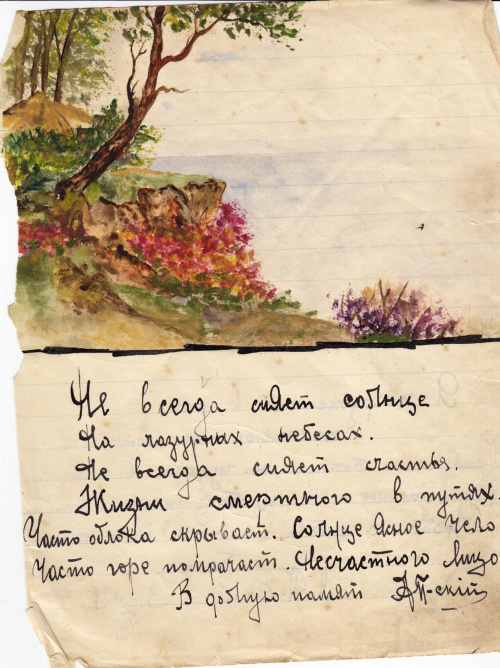 Не всегда сияет солнце
На лазурных небесах.
Не всегда сияет счастья.
Жизни смертного в путях.
Часто облока скрывает. Солнце Ясное Чело
Часто горе помрачает. Несчастного Лицо
В добную памят АП-скій